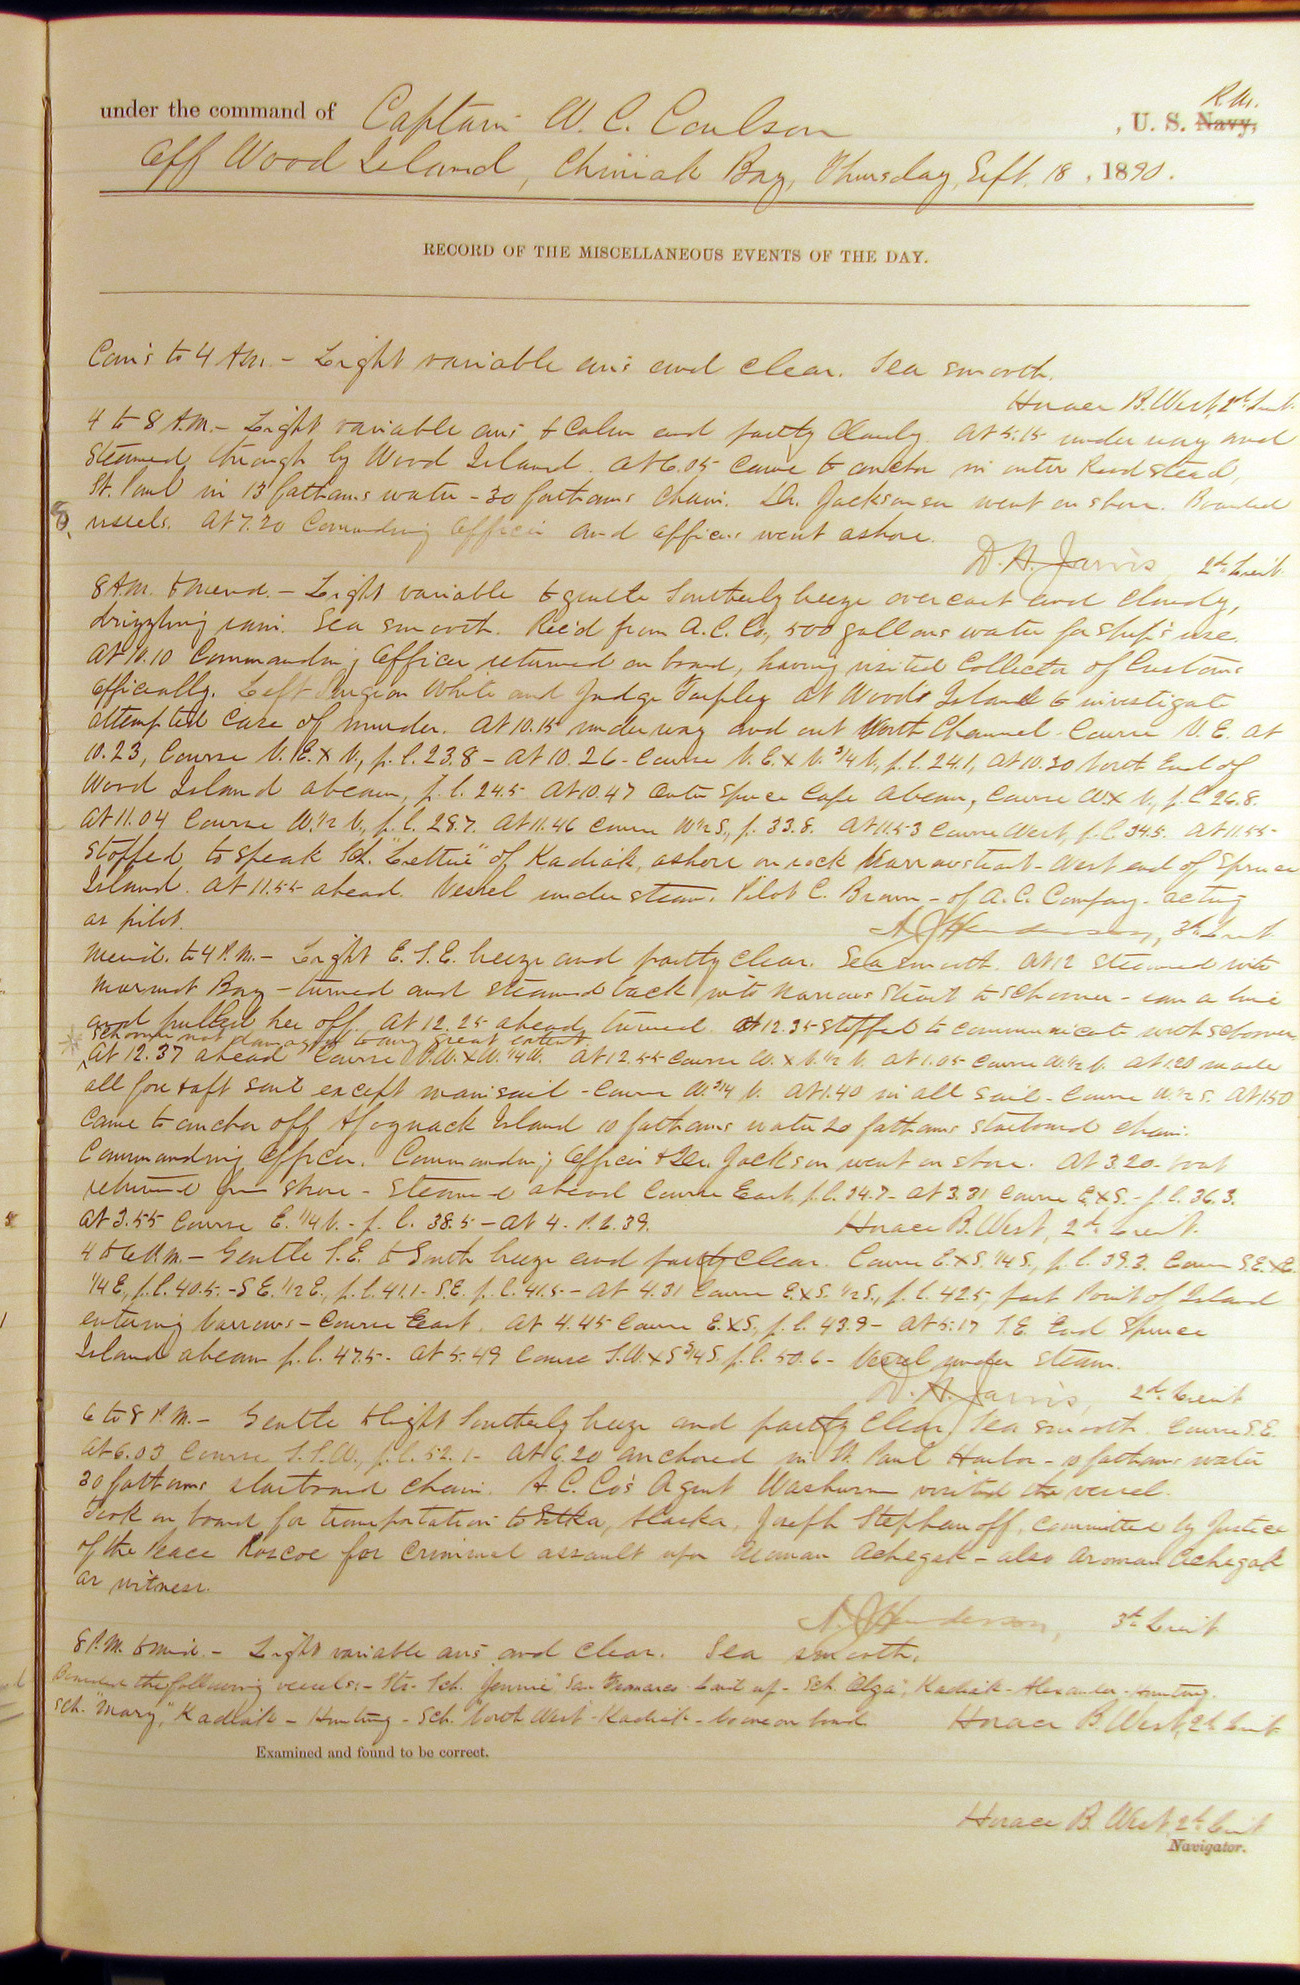 R.M.
under the command of Captain W. C. Coulson , U. S. Navy,
Off Wood Island, Chiniak Bay, Thursday, Sept. 18 , 1890.
RECORD OF THE MISCELLANEOUS EVENTS OF THE DAY.
Com's to 4 A.M. - Light variable airs and clear. Sea smooth.
Horace B. West, 2d Lieut.
4 to 8 A.M. - Light variable airs to Calm and partly Cloudy. At 5.15 under way and
Steamed through by Wood Island. At 6.05 came to anchor in outer Roadstead,
St. Paul in 13 fathoms water - 30 fathoms chain. Dr. Jackson went on shore. Boarded
vessels. At 7.20 Commanding Officer and officers went ashore.
D. H. Jarvis 2d Lieut.
8 A.M. to Merid. - Light variable to gentle Southerly breeze overcast and cloudy,
drizzling rain. Sea smooth. Rec'd from A. C. Co., 500 gallons water for ship's use.
At 10.10 Commanding Officer returned on board, having visited Collector of Customs
officially. Left Surgeon White and Judge Tarpley at Woods Island to investigate
attempted case of murder. At 10.15 underway and out North Channel - Course N. E. at
10.23, Course N. E. x N., p. l. 23.8 - At 10.26 - Course N. E. x N. 3/4 N, p. l. 24.1, At 10.30 North End of
Wood Island abeam, p. l. 24.5 At 10.47 Outer Spruce Cape abeam, Course W x N., p. l. 26.8.
At 11.04 Course W. 1/2 N., p. l. 28.7. At 11.46 Course W 1/2 S., p. 33.8. At 11.53 Course West, p. l. 34.5. At 11.55
stopped to speak Sch. "Lettie" of Kadiak, ashore on rock Narrow strait - West end of Spruce
Island. At 11.55 ahead. Vessel under steam. Pilot C. Brown - of A. C. Company - acting
as pilot.
A. J. Henderson, 3d Lieut.
Merid. to 4 P.M. - Light E. S. E. breeze and partly clear. Sea smooth. At 12 steamed into
Marmot Bay - turned and steamed back into Narrow Strait to schooner - ran a line
and pulled her off. At 12.25 ahead, turned. At 12.35 stopped to communicate with schooner,
Schooner not damaged to any great extent.
At 12.37 ahead Course N.W. x W. 1/4 W. At 12.55 Course W. x N. 1/2 N. At 1.05 Course W. 1/2 N. At 1.20 made
all fore & aft sail except mainsail - Course W. 3/4 N. At 1.40 in all sail - Course W. 1/2 S. At 1.50
came to anchor off Afognack Island 10 fathoms water 20 fathoms starboard chain.
Commanding Officer. Commanding Officer & Dr. Jackson went on shore. At 3.20 - boat
returned from shore - Steamed ahead Course East, p. l. 34.7 - At 3.31 Course E x S. - p. l. 36.3.
At 3.55 Course E. 1/4 N. - p. l. 38.5 - At 4 - P. L. 39.
Horace B. West, 2d Lieut.
4 to 6 P.M. - Gentle S. E. to South breeze and partly clear. Course E. x S. 1/4 S., p. l. 39.3. Course S.E. x E.
1/4 E, p. l. 40.5. - S E. 1/2 E., p. l. 41.1 - S.E. p. l. 41.5 - At 4.31 Course E. x S. 1/2 S., p. l. 42.5, past Point of Island
entering Narrows - Course East. At 4.45 Course E. x S, p. l. 43.9 - At 5.17 S. E. End Spruce
Island abeam p. l. 47.5 - At 5.49 Course S.W. x S 3/4 S. p. l. 50.6 - Vessel under steam.
D. H. Jarvis, 2d Lieut
6 to 8 P. M. - Gentle to light Southerly breeze and partly clear, Sea smooth. Course S.E.
At 6.03 Course S. S. W., p. l. 52.1 - At 6.20 anchored in St. Paul Harbor - 10 fathoms water
30 fathoms starboard chain. A. C. Co's Agent Washburn visited the vessel.
Took on board for transportation to Sitka, Alaska, Joseph Stephanoff, committed by Justice
of the Peace Roscoe for criminal assault upon woman Achegak - also woman Achegak
as witness.
A. J. Henderson, 3d Lieut
8 P.M. to Mid. - Light variable airs and clear. Sea smooth.
Boarded the following vessels: - Str. Sch. "Jennie" San Francisco - laid up - Sch. "Olga", Kadiak - Alexander - Hunting.
Sch. "Mary", Kadiak - Hunting - Sch. North West - Kadiak - no one on board
Horace B. West, 2d Lieut
Examined and found to be correct.
Horace B. West, 2d Lieut
Navigator.